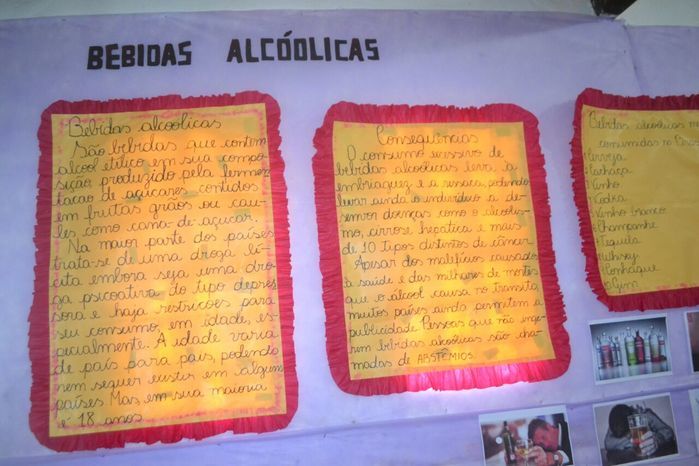 BEBIDAS ALCÓOLICAS
Bebidas alcoolicas
São bebidas que contem
alcool etílico em sua compo
sição, produzido pela fermen
tacao de açucares contidos
em frutas grãos ou cau-
les como cana-de-açucar.
Na maior parte dos países
trata-se de uma droga lí-
cita embora seja uma dro
ga psicoativa do tipo depres
sora e haja restricões para
seu consumo, em idade, es-
pecialmente. A idade varia
de país para país, podendo
nem sequer existir em alguns
países Mas em sua maioria
é 18 anos
Consequências
O consumo excessivo de
bebidas alcoolicas leva à
embriaguez e a ressaca, podendo
levar ainda o individuo a de-
senvor doenças como o alcoolis-
mo, cirrose hepatica e mais
de 10 tipos distintos de câncer
Apesar dos maleficios causados
à saúde e das milhares de mortes
que o alcool causa no transito,
muitos países ainda permitem a
publicidade Pessoas que não inge-
rem bebidas alcoolicas são cha-
madas de ABSTÊMIOS.
Bebidas alcoolicas m
consumidas no
Cerveja
Cachaça
Vinho
Vodka
Vinho branco
Champanhe
Tequila
Conhaque
Gim